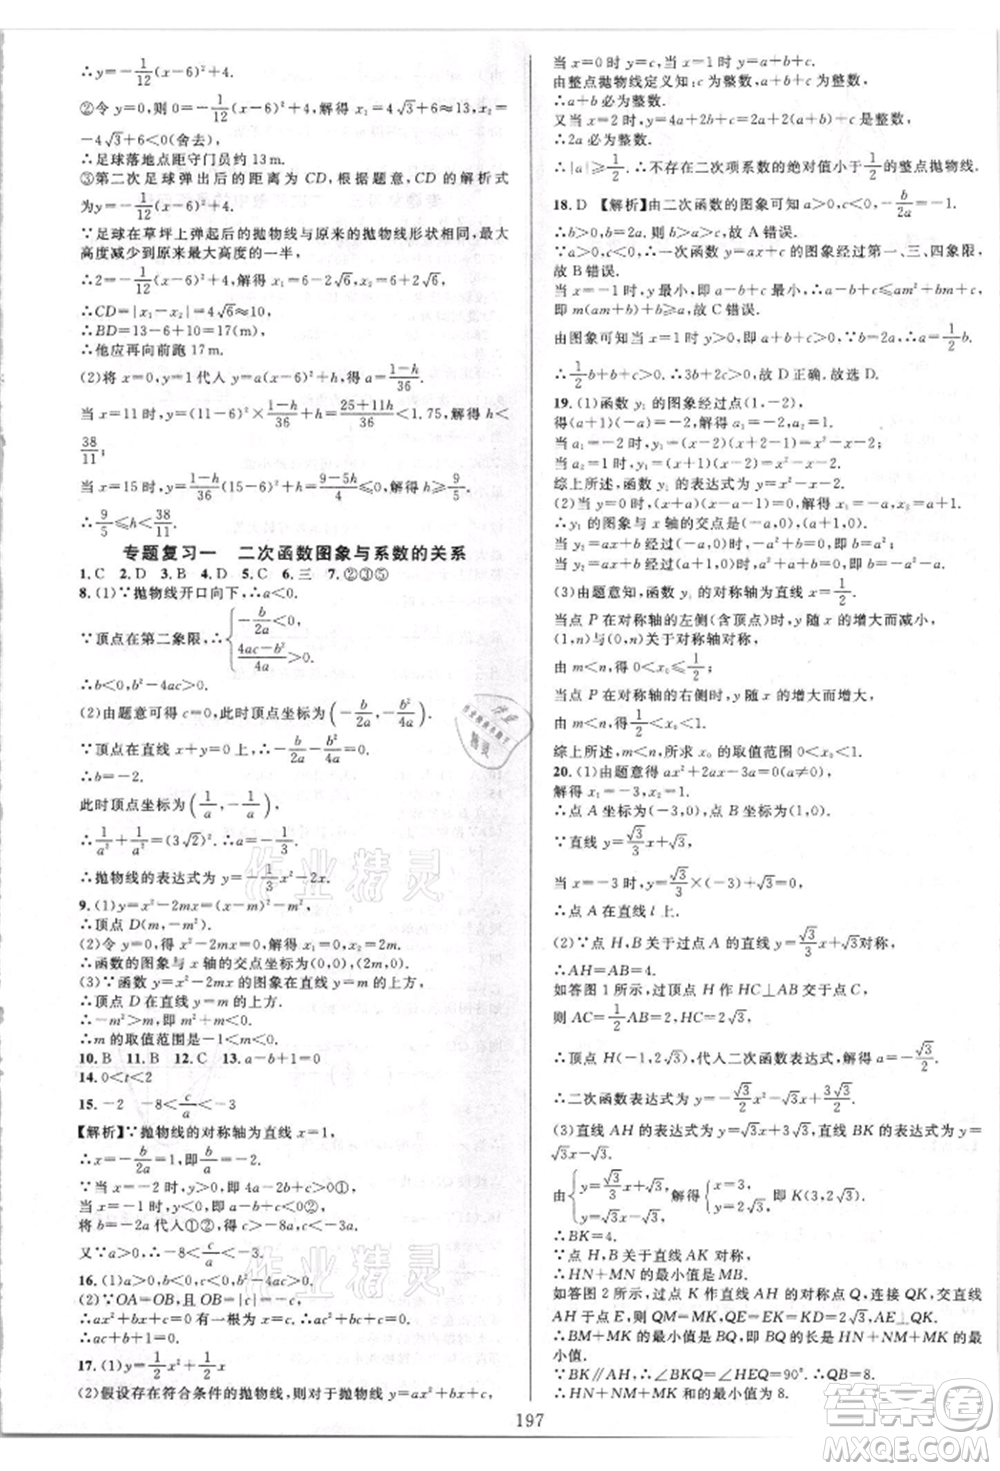 ∴y=-1/12(x-6)²+4.
②令 y=0,则 0=-1/12(x-6)²+4,解得 x₁=4√3+6≈13,x₂=
-4√3+6<0(舍去).
∴足球落地点距守门员约 13 m.
③第二次足球弹出后的距离为 CD,根据题意, CD 的解析式
为 y=-1/12(x-6)²+2,
∵足球在草坪上弹起后的抛物线与原来的抛物线形状相同,最大
高度减少到原来最大高度的一半,
∴2=-1/12(x-6)²+4,解得 x₁=6-2√6,x₂=6+2√6,
∴CD=|x₁-x₂|=4√6≈10,
∴BD=13-6+10=17(m).
∴他应再向前跑 17 m.
(2)将 x=0,y=1 代入 y=a(x-6)²+h 得 a=(1-h)/36.
当 x=11 时,y=(11-6)²×(1-h)/36+h=(25+11h)/36<1.75,解得 h<
38/11;
当 x=15 时,y=(1-h)/36(15-6)²+h=(9-5h)/4≤0,解得 h≥9/5
∴9/5≤h<38/11.
专题复习一 二次函数图象与系数的关系
1. C 2. D 3. B 4. D 5. C 6. 三 7. ②③⑤
8. (1)∵抛物线开口向下,∴a<0.
∵顶点在第二象限,∴{-b/2a<0, (4ac-b²)/4a>0.
∴b<0,b²-4ac>0.
(2)由题意可得 c=0,此时顶点坐标为(-b/2a,-b²/4a).
∵顶点在直线 x+y=0 上,∴-b/2a-b²/4a=0.
∴b=-2.
此时顶点坐标为(1/a,-1/a)
∴1/a²+1/a²=(3√2)². ∴a=-1/3.
∴抛物线的表达式为 y=-1/3x²-2x.
9. (1)∵y=x²-2mx=(x-m)²-m²,
∴顶点 D(m,-m²).
(2)令 y=0,得 x²-2mx=0,解得 x₁=0,x₂=2m.
∴函数的图象与 x 轴的交点坐标为(0,0),(2m,0).
(3)∵函数 y=x²-2mx 的图象在直线 y=m 的上方,
∴顶点 D 在直线 y=m 的上方.
∴-m²>m,即 m²+m<0.
∴m 的取值范围是-1<m<0.
10. B 11. B 12. C 13. a-b+1=0
14. 0<t<2
15. -2 -8<c/a<-3
【解析】∵抛物线的对称轴为直线 x=1,
∴x=-b/2a=1,即 b/a=-2.
∵当 x=-2 时,y>0,即 4a-2b+c>0①,
当 x=-1 时,y<0,即 a-b+c<0②,
将 b=-2a 代入①②得 c>-8a,c<-3a,
又∵a>0,∴-8<c/a<-3.
16. (1)a>0,b>0,c<0,b²-4ac>0.
(2)∵OA=OB=|c|=-c,
∴ax²+bx+c=0 有一根为 x=c.
∴ac²+bc+c=0.
∴ac+b+1=0.
17. (1)y=1/2x²+1/2x
(2)假设存在符合条件的抛物线,则对于抛物线 y=ax²+bx+c,
当 x=0 时 y=c,当 x=1 时 y=a+b+c,
由整点抛物线定义知:c为整数,a+b+c 为整数,
∴a+b 必为整数.
又当 x=2 时,y=4a+2b+c=2a+2(a+b)+c 是整数,
∴2a 必为整数.
∴|a|≥1/2. ∴不存在二次项系数的绝对值小于1/2的整点抛物线.
18. D 【解析】由二次函数的图象可知 a>0,c<0,-b/2a=-1,
∴b>0,b=2a,则 b>a>c,故 A 错误.
∵a>0,c<0,∴一次函数 y=ax+c 的图象经过第一、三、四象限,
故 B 错误.
当 x=-1 时,y 最小,即 a-b+c 最小,∴a-b+c≤am²+bm+c,
即 m(am+b)+b≥a,故 C 错误.
由图象可知 x=1 时 y>0,即 a+b+c>0,∵b=2a,∴a=1/2b.
∴1/2b+b+c>0. ∴3b+2c>0,故 D 正确.故选 D.
19. (1)函数 y₁ 的图象经过点(1,-2),
得(a+1)(-a)=-2,解得 a₁=-2,a₂=1.
当 a₁=-2 时,y₁=(x-2)(x+2-1)=x²-x-2;
当 a₂=1 时,y₁=(x+1)(x-2)=x²-x-2.
综上所述,函数 y₁ 的表达式为 y=x²-x-2.
(2)当 y=0 时,(x+a)(x-a-1)=0,解得 x₁=-a,x₂=a+1.
∴y₁ 的图象与 x 轴的交点是(-a,0),(a+1,0).
(3)由题意知,函数 y₁ 的对称轴为直线 x=1/2.
当点 P 在对称轴的左侧(含顶点)时,y 随 x 的增大而减小,
(1,n)与(0,n)关于对称轴对称,
由 m<n,得 0<x₀≤1/2;
当点 P 在对称轴的右侧时,y随 x 的增大而增大,
由 m<n,得1/2<x₀<1.
综上所述,m<n,求 x₀ 的取值范围 0<x₀<1.
20. (1)由题意得 ax²+2ax-3a=0(a≠0),
解得 x₁=-3,x₂=1.
∴点 A 坐标为(-3,0),点 B 坐标为(1,0).
∵直线 y=√3/3x+√3,
当 x=-3 时,y=√3/3×(-3)+√3=0,
∴点 A 在直线 l 上.
(2)∵点 H,B 关于过点 A 的直线 y=√3/3x+√3对称,
∴AH=AB=4.
如答图 1 所示,过顶点 H 作 HC⊥AB 交于点 C,
则 AC=1/2AB=2,HC=2√3,
∴顶点 H(-1,2√3),代入二次函数表达式,解得 a=-√3/2.
∴二次函数表达式为 y=-√3/2x²-√3x+3√3/2.
(3)直线 AH 的表达式为 y=√3x+3√3,直线 BK 的表达式为 y=
√3x-√3,
由{y=√3/3x+√3, y=√3x-√3,解得{x=3, y=2√3,即 K(3,2√3),
∴BK=4.
∵点 H,B 关于直线 AK 对称,
∴HN+MN 的最小值是 MB.
如答图 2 所示,过点 K 作直线 AH 的对称点 Q,连接 QK,交直线
AH 于点 E,则 QM=MK,QE=EK=2√3,AE⊥QK.
∴BM+MK 的最小值是 BQ,即 BQ 的长是 HN+NM+MK 的最
小值.
∵BK∥AH,∴∠BKQ=∠HEQ=90°.∴QB=8.
∴HN+NM+MK 和的最小值为 8.
197
作业精灵
作业精灵
答案卷
MXQE.COM